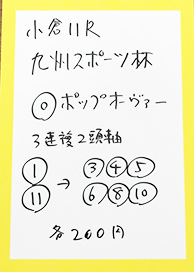 小倉11R
九州スポーツ杯
◎ポップオーヴァー
3連複2頭軸
① → ③④⑤
⑪ ⑥⑧⑩
各200円